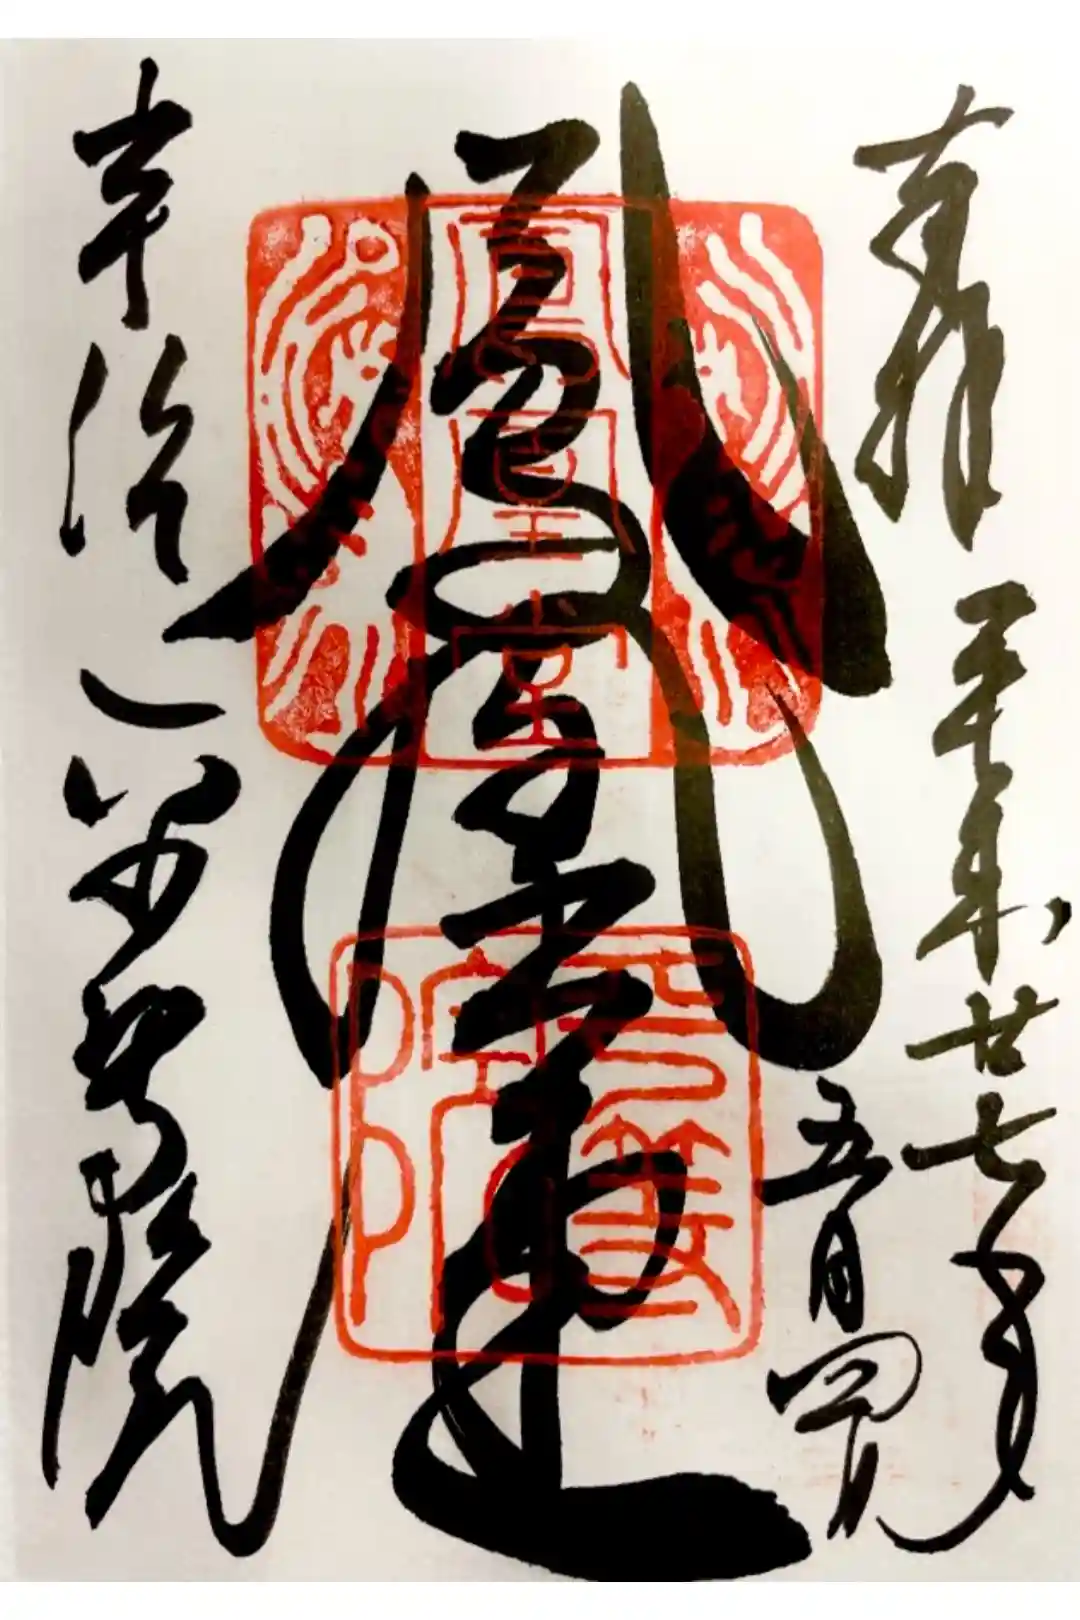 奉拝 平成廿七年
五月四日
鳳凰堂
鳳凰堂
平等院
宇治
平等院